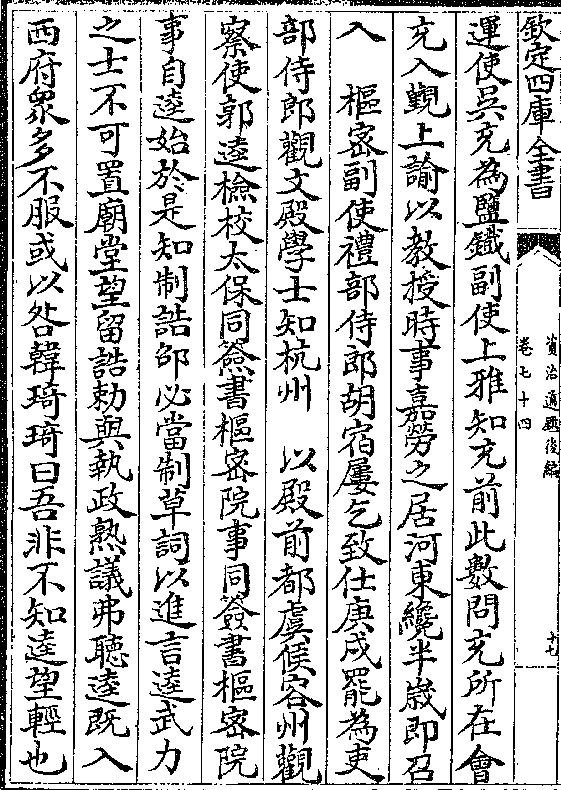 欽定四庫全書
資治通鑑後編
卷七十四
十七
運使吳充為鹽鐵副使上雅知充前此數問充所在會
充入覲上諭以教授時事嘉勞之居河東纔半歲即召
入　樞密副使禮部侍郎胡宿屢乞致仕庚戌罷為吏
部侍郎觀文殿學士知杭州　以殿前都虞候容州觀
察使郭逵檢校太保同簽書樞密院事同簽書樞密院
事自逵始於是知制誥邵必當制草詞以進言逵武力
之士不可置廟堂望留誥勅與執政熟議弗聽逵既入
西府衆多不服或以咎韓琦琦曰吾非不知逵望輕也